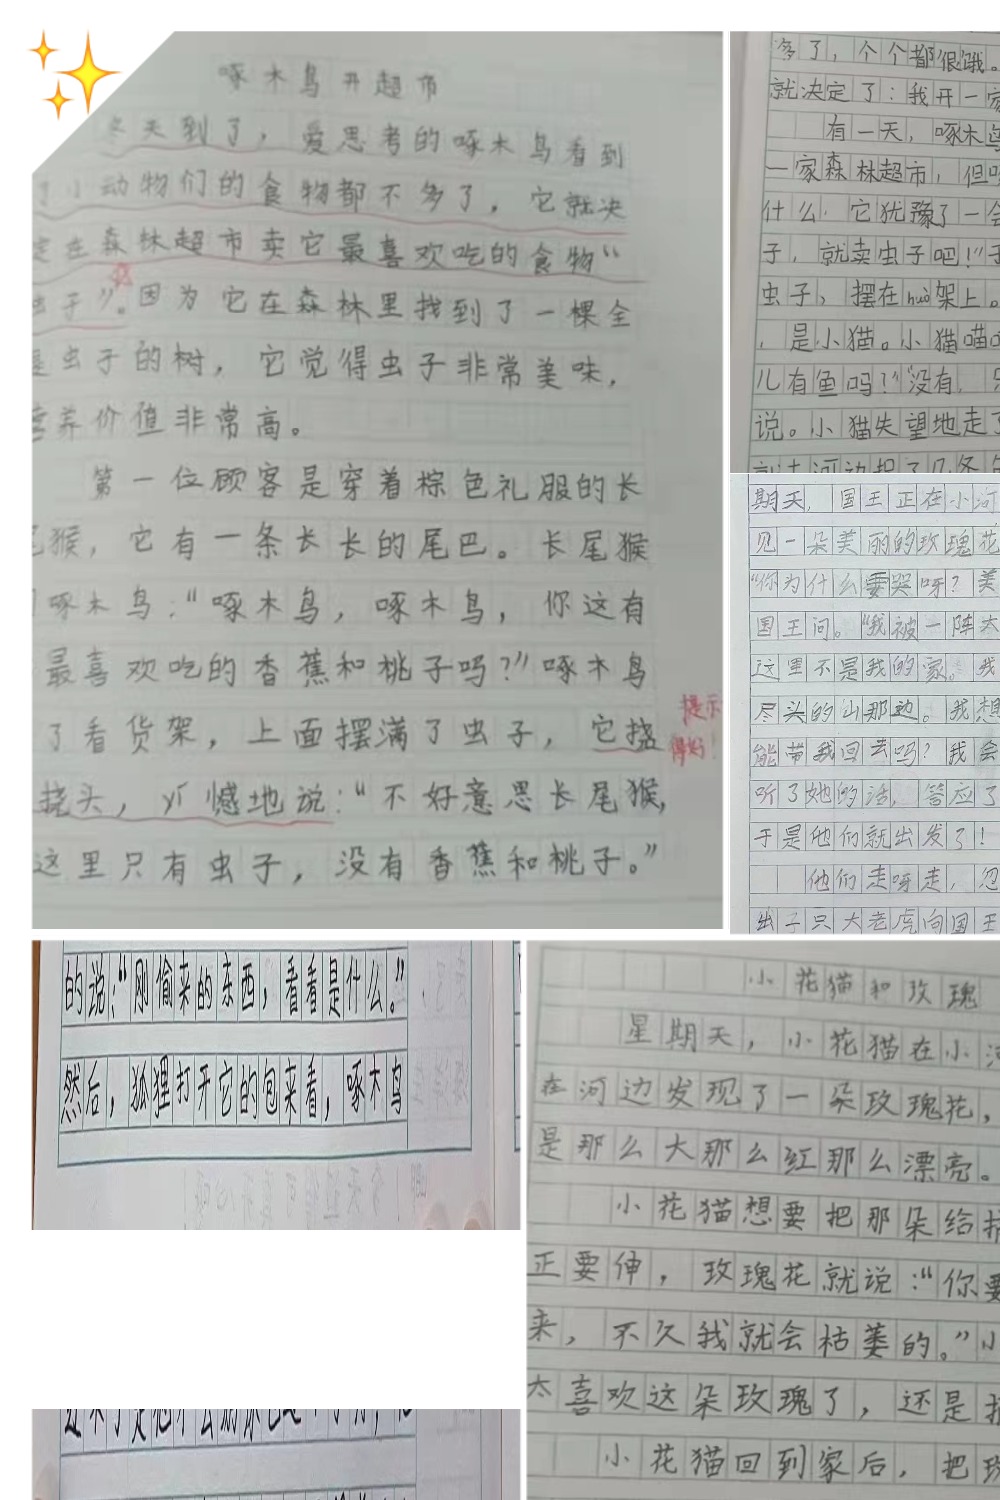 啄木鸟开超市
冬天到了，爱思考的啄木鸟看到
了小动物们的食物都不多了，它就决
定在森林超市卖它最喜欢吃的食物“
虫子”。因为它在森林里找到了一棵全
是虫子的树，它觉得虫子非常美味，
营养价值非常高。
第一位顾客是穿着棕色礼服的长
尾猴，它有一条长长的尾巴。长尾猴
啄木鸟：“啄木鸟，啄木鸟，你这有
最喜欢吃的香蕉和桃子吗？”啄木鸟
了看货架，上面摆满了虫子，它挠
挠头，yí憾地说：“不好意思长尾猴，
这里只有虫子，没有香蕉和桃子。”
提示
得好！
多了，个个都很饿。
就决定了：我开一家
有一天，啄木鸟
一家森林超市，但
什么，它犹豫了一会
子，就卖虫子吧！”于
虫子，摆在huò架上。
，是小猫。小猫喵
儿有鱼吗？”“没有，
说。小猫失望地走了
期天，国王正在小河
见一朵美丽的玫瑰花
“你为什么要哭呀？美
国王问。“我被一阵大
这里不是我的家。我
尽头的山那边。我想
能带我回去吗？我会
听了她的话，答应了
于是他们就出发了！
他们走呀走，忽
出了只大老虎向国王
的说：“刚偷来的东西，看看是什么。”
然后，狐狸打开它的包来看，啄木鸟
小花猫和玫瑰
星期天，小花猫在小河
在河边发现了一朵玫瑰花，
是那么大那么红那么漂亮。
小花猫想要把那朵给摘
正要伸，玫瑰花就说：“你要
来，不久我就会枯萎的。”小
太喜欢这朵玫瑰了，还是摘
小花猫回到家后，把玫